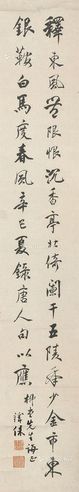 釋東風無限恨沉香亭北倚闌干五陵年少金市東
銀鞍白馬度春風辛巳夏錄唐人句以應
先生誨正